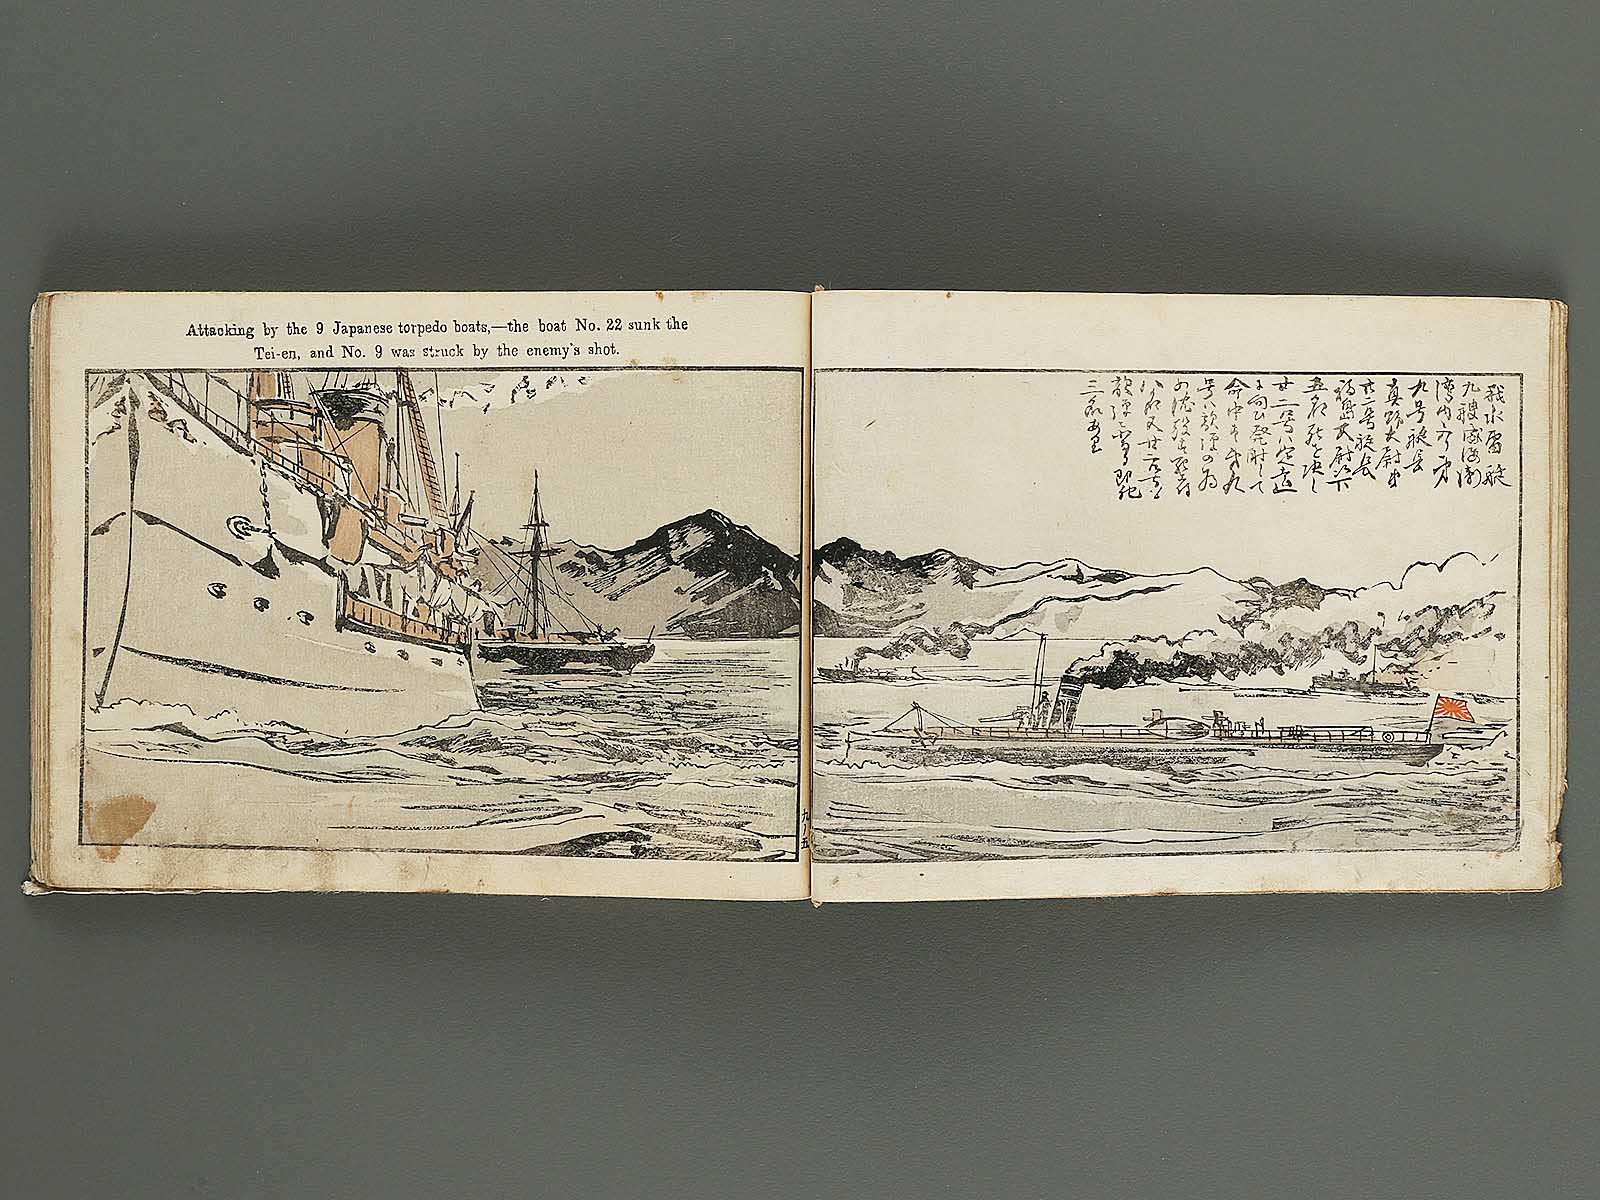 Attacking by the 9 Japanese torpedo boats,—the boat No. 22 sunk the
Tei-en, and No. 9 was struck by the enemy's shot.
我水雷艇
九艘威海衛
九号艇長
真野大尉
廿二号艇長
福島大尉以下
五名死を決し
廿二号ハ定遠
に向ひ発射して
命中す
号ハ敵弾の為
八名又廿
敵弾ニ当り即死
三名あり
九ノ五